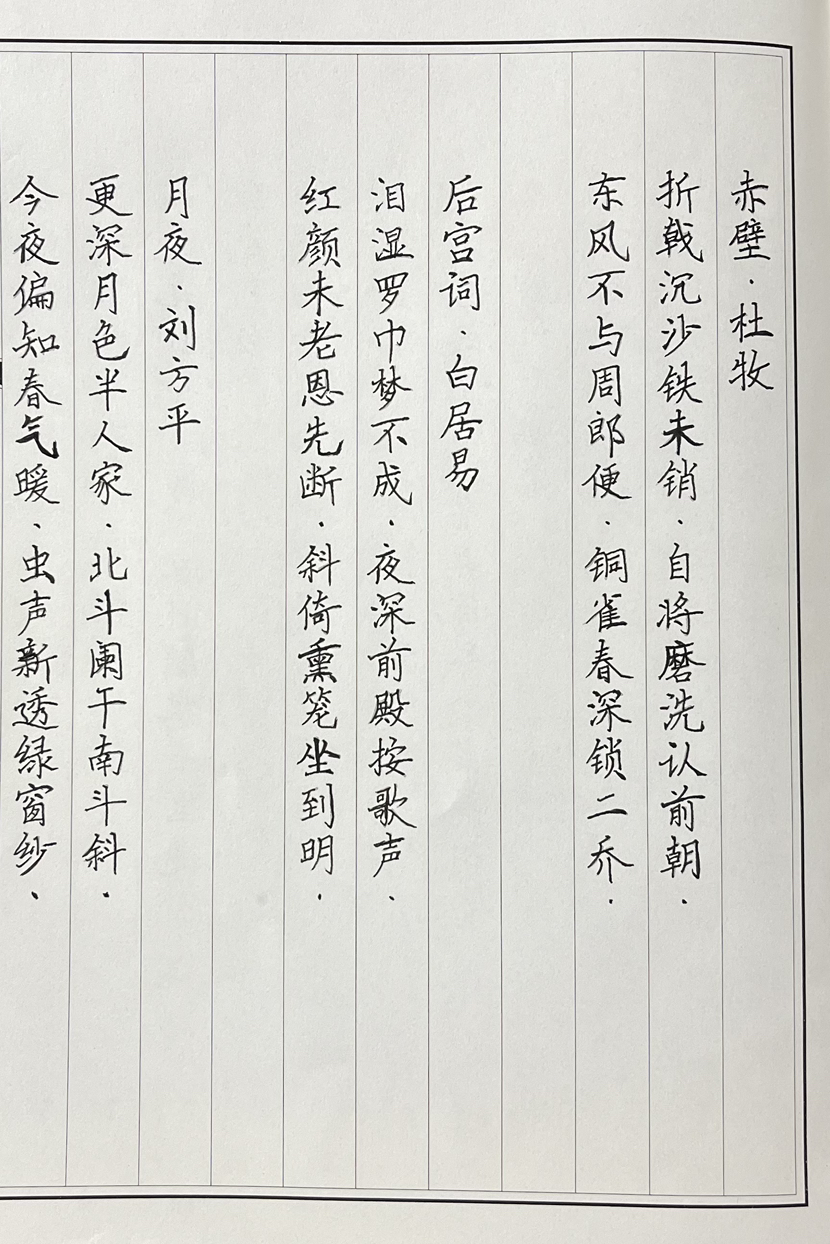 赤壁·杜牧
折戟沉沙铁未销·自将磨洗认前朝·
东风不与周郎便·铜雀春深锁二乔·
后宫词·白居易
泪湿罗巾梦不成·夜深前殿按歌声·
红颜未老恩先断·斜倚熏笼坐到明·
月夜·刘方平
更深月色半人家·北斗阑干南斗斜·
今夜偏知春气暖·虫声新透绿窗纱·